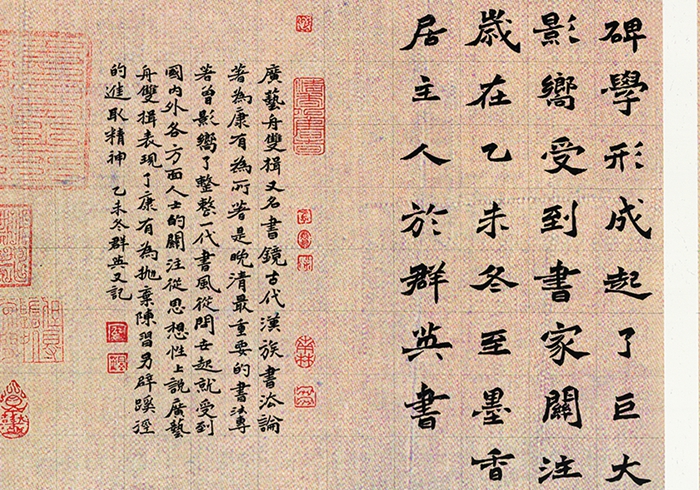 碑學形成起了巨大
影嚮受到書家關注
歲在乙未冬至墨香
居主人於群英書
廣藝舟雙楫又名書鏡古代漢族書法論
著為康有為所著是晚清最重要的書法專
著曾影嚮了整整一代書風從問世起就受到
國内外各方面人士的關注從思想性上說廣藝
舟雙楫表現了康有為拋棄陳習另辟蹊徑
的進取精神 乙未冬群英又記